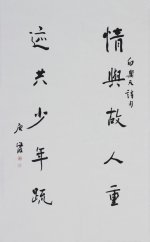 情與故人重
迹共少年疏
白樂天詩句